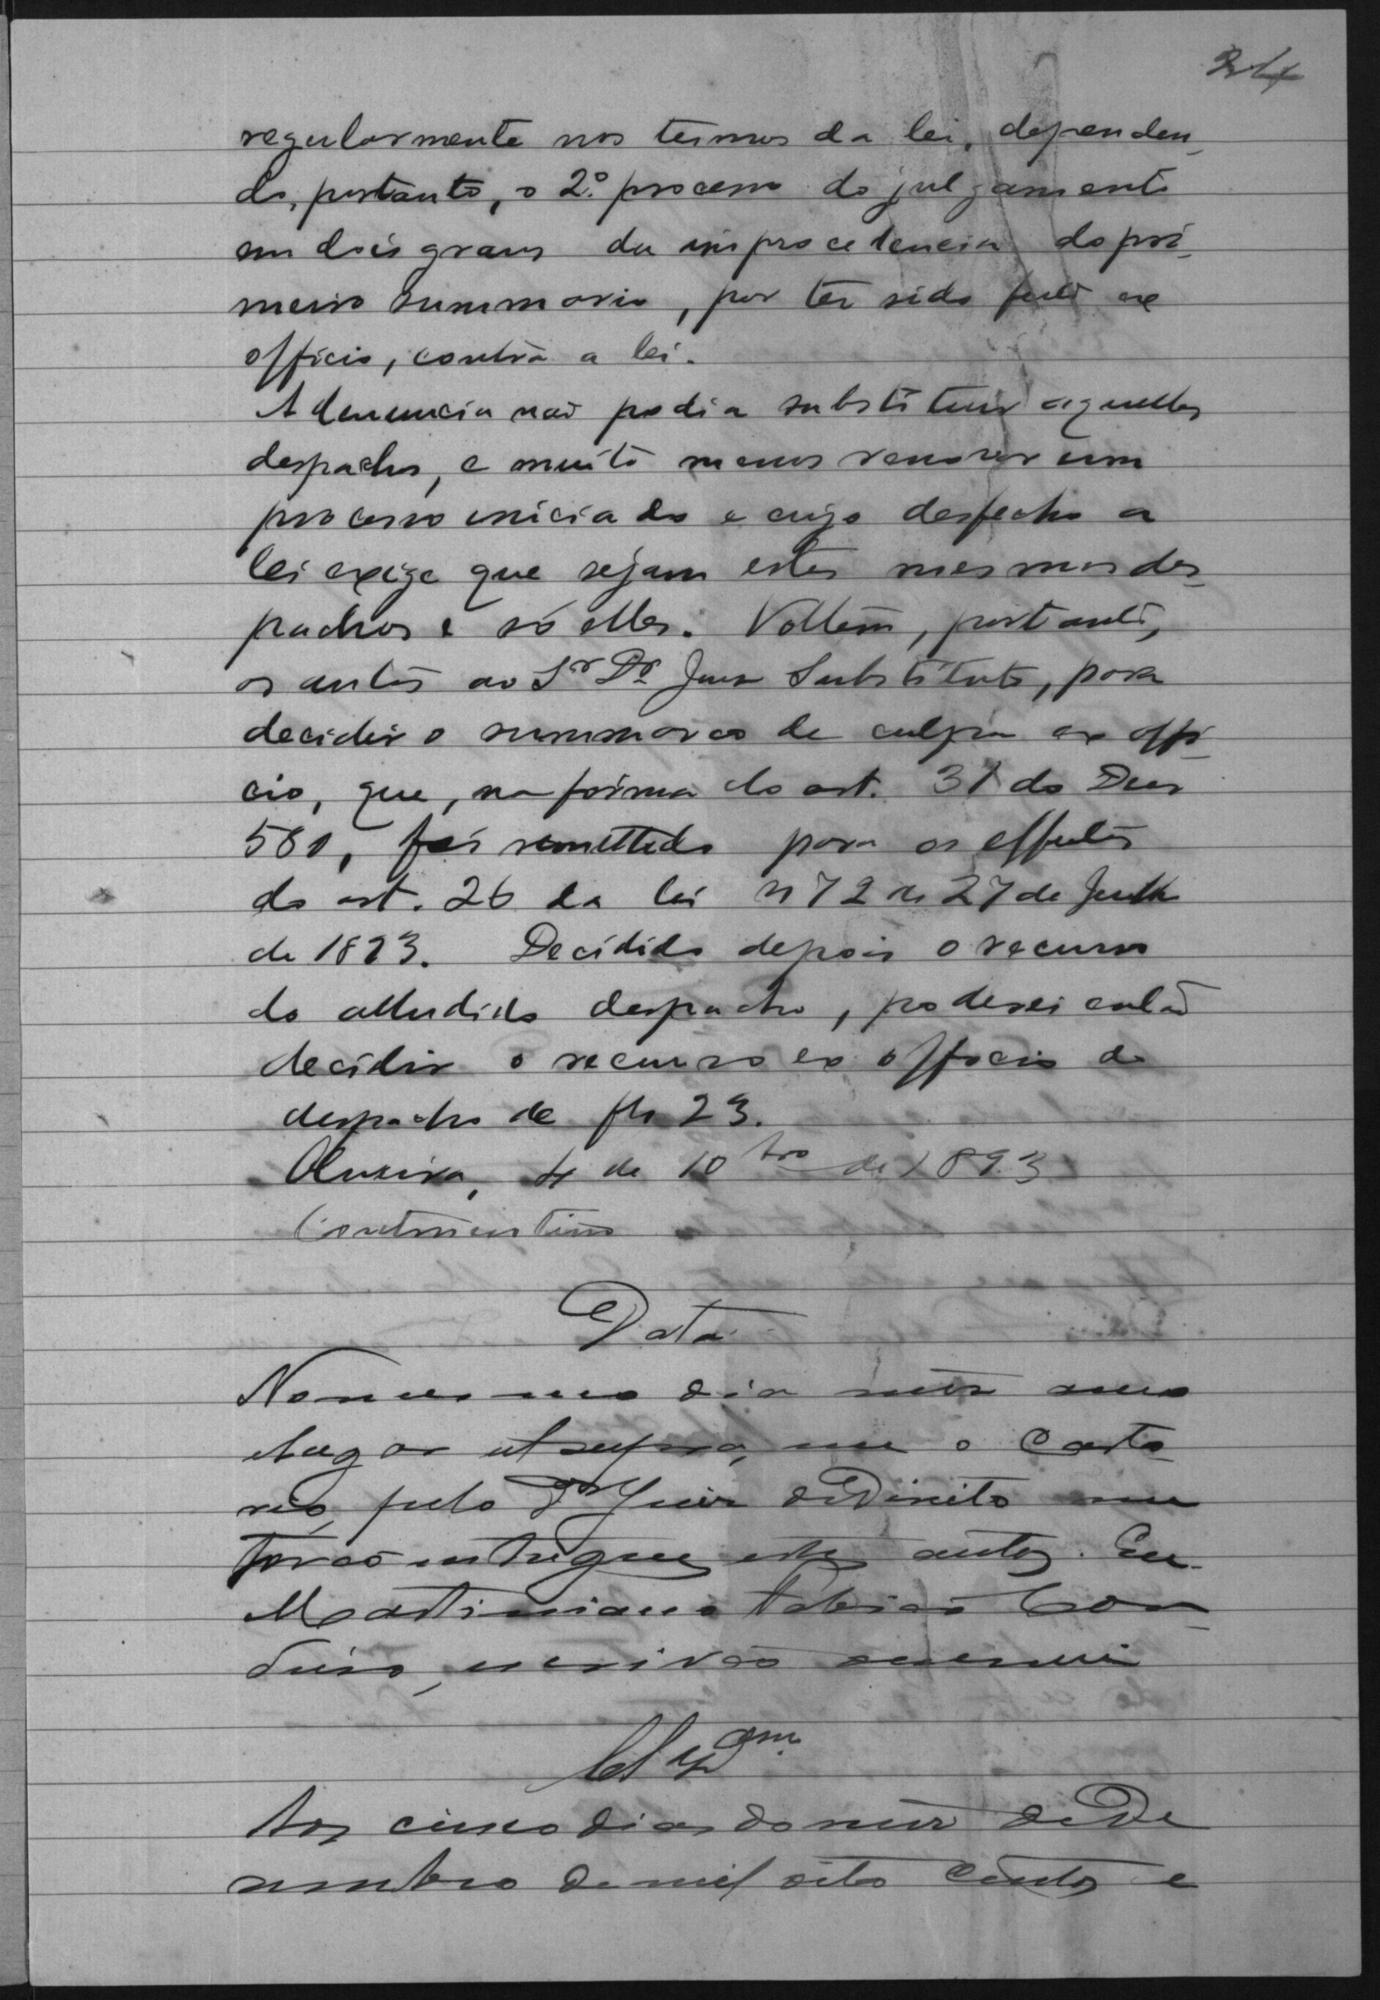 24
regularmente nos termos da lei, dependen
do, portanto, o 2º processo do julgamento
em dois graus da improcedencia do pri
meiro summario, por ter sido feito ex
officio, contra a lei.
A denuncia não podia substituir aquelles
despachos, e muito menos renovar um
processo iniciado e cujo desfecho a
lei exige que sejam estes mesmos des
pachos e só elles. Voltem, portanto,
os autos ao Sr Dr Juiz Substituto, para
decidir o summario de culpa ex offi
cio, que, na forma do art. 31 do Decr
580, foi remettido para os effeitos
do art. 26 da lei nº 72 de 27 de Julho
de 1893. Decidido depois o recurso
do alludido despacho, poderei então
decidir o recurso ex officio do
despacho de fls 23.
Oliveira, 4 de 10bro de 1893
Data
No mesmo dia mez anno
e lugar ut supra, em o Carto
rio, pelo Dr Juiz de Direito me
forão entregues estes autos. Eu
Martiniano
escrivão escrevi
Clsam
Aos cinco dias do mez de De
sembro de mil oito centos e